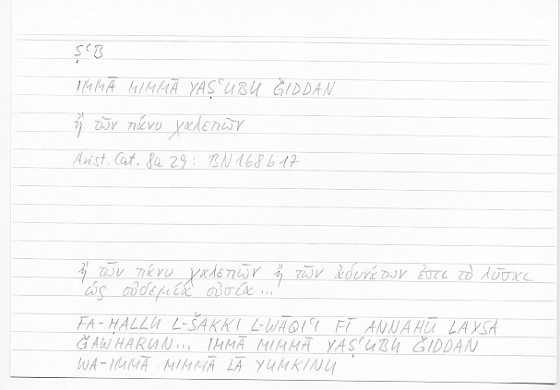 Ṣ ʿB
IMMĀ MIMMĀ YAṢʿUBU ĞIDDAN
ἢ τῶν πάνυ χαλεπῶν
Arist. Cat. 8a 29: BN 168b17
ἢ τῶν πάνυ χαλεπῶν ἢ τῶν ἀδυνάτων ἐστὶ τὸ λῦσαι
ὡς οὐδεμία οὐσία...
FA-ḤALLU L-ŠAKKI L-WĀQIʿI FĪ ANNAHŪ LAYSA
ĞAWHARUN... IMMĀ MIMMĀ YAṢʿUBU ĞIDDAN
WA-IMMĀ MIMMĀ LĀ YUMKINU